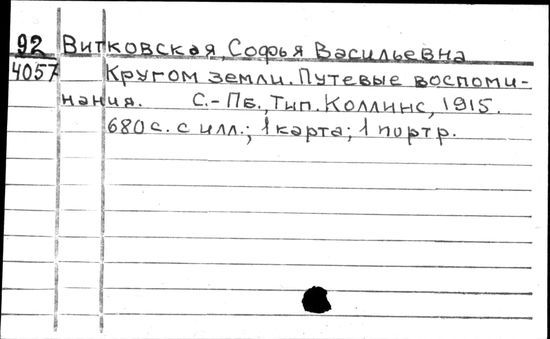 92 Витковская, Софья Васильевна
4057 Кругом земли. Путевые воспоми-
нания. С.-Пб., Тип. Коллинс, 1915.
680 с. с илл.; 1 карта; 1 портр.